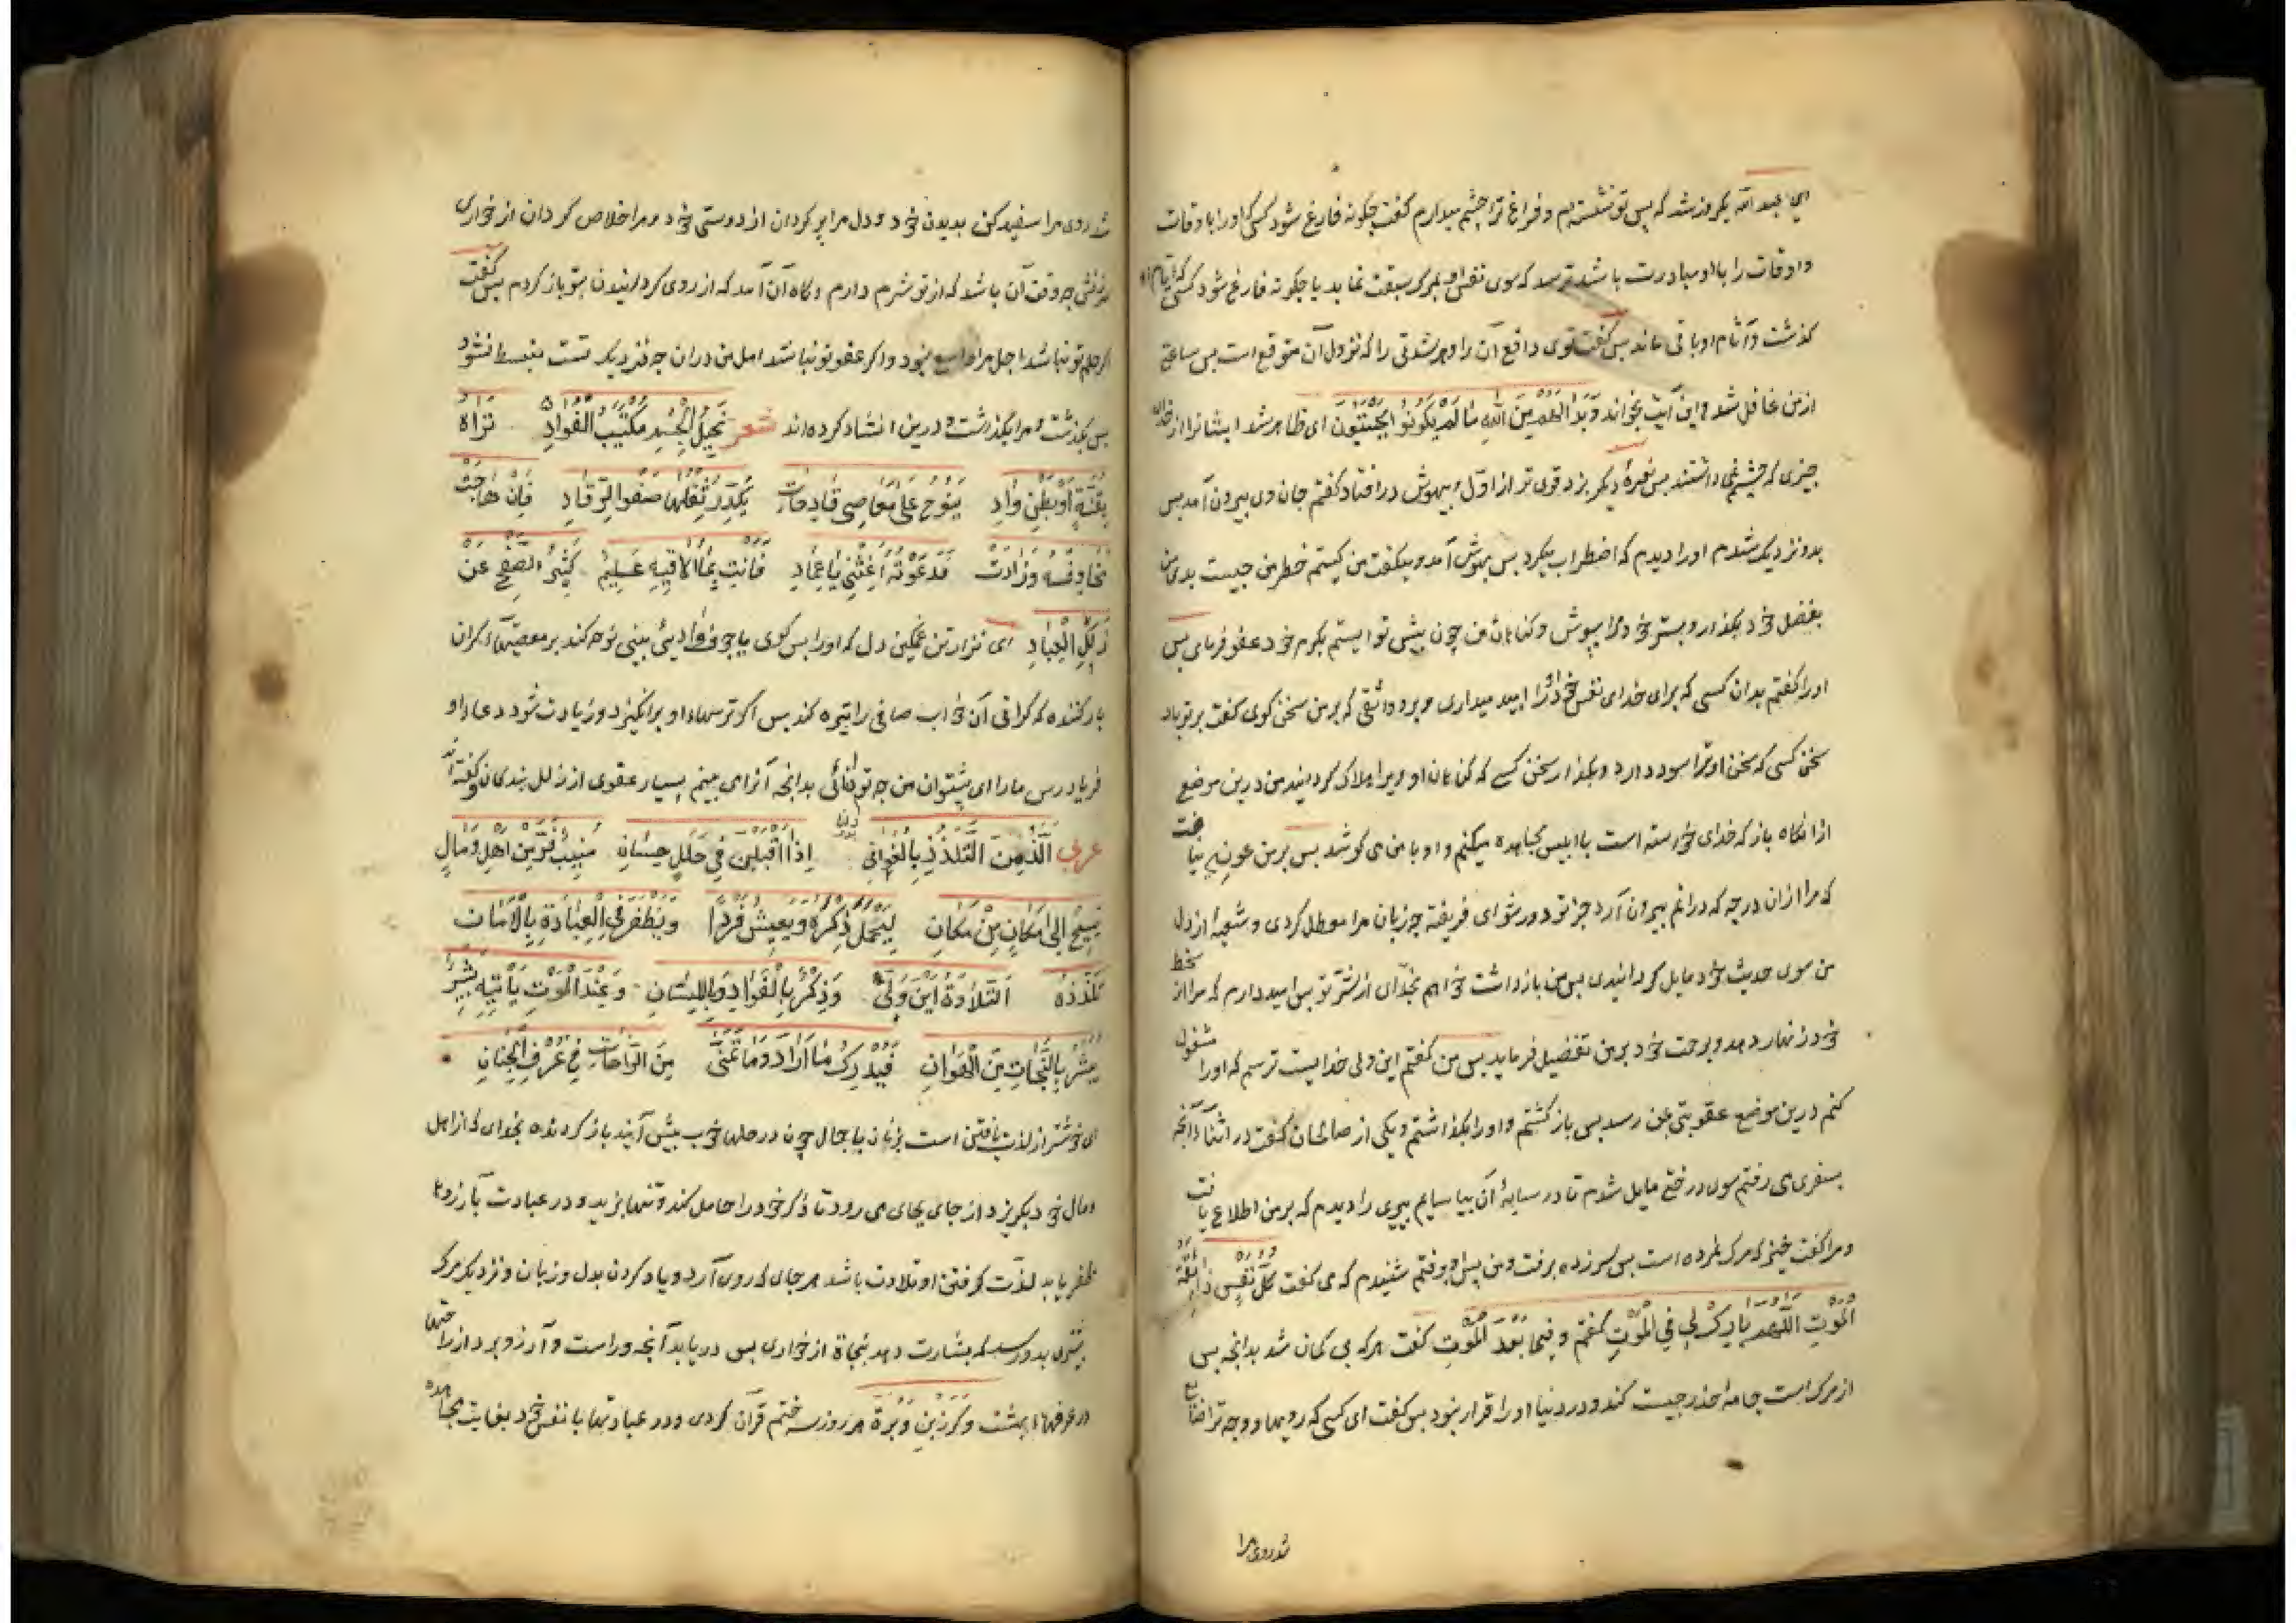 ای عبد الله یکروز شد که پس تو نشسته‌ام و فراغ ترا چشم میدارم گفت چگونه فارغ شود کسی که او را با اوقات
و اوقات را با او مبادرت باشد ترسد که سوی نفس او بمرگ سبقت نماید یا چگونه فارغ شود کسی که ایام او
گذشت و آثام او باقی ماند پس گفت توی دافع آن را و هر شدتی را که نزول آن متوقع است پس ساعتی
از من غافل شد و این آیت بخواند وَبَدَا لَهُم مِنَ اللّٰهِ مَا لَمْ يَكُونُوا يَحْتَسِبُون ای ظاهر شد ایشانرا از خدای
چیزی که چشم نمیداشتند پس نعرهٔ دیگر بزد قوی تر از اول و بیهوش در افتاد گفتم جان وی بیرون آمد پس
بدو نزدیک شدم او را دیدم که اضطراب میکرد پس بهوش آمد و میگفت من کیستم خطر من چیست بدی من
بفضل خود بگذار و بستر خود مرا بپوش و گناهان من چون پیش تو ایستم بکرم خود عفو فرمای پس
او را گفتم بدان کسی که برای خدای نفس خود را امید میداری و برو واثقی که بر من سخن گوی گفت بر تو باد
سخن کسی که سخن او ترا سود دارد و بگذار سخن کسی که گناهان او ویرا هلاک گردانید من درین موضع
از انگاه باز که خدای خواسته است با ابلیس مجاهده میکنم و او با من می کوشد پس بر من عونی نیافت
که مرا از ان درجه که درانم بیرون آرد جز تو دور شو ای فریفته چه زبان مرا معطل کردی و شعبهٔ از دل
من سوی حدیث خود مایل گردانیدی پس من باز داشت خواهم بخدای از شر تو پس امید دارم که مرا از سخط
خود زنهار دهد و برحمت خود بر من تفضیل فرماید پس من گفتم این ولی خدایست ترسم که او را مشغول
کنم درین موضع عقوبتی بمن رسد پس باز گشتم و او را بگذاشتم و یکی از صالحان گفت در اثنای آنچه
بسفری می رفتم سوی درختی مایل شدم تا در سایهٔ آن بیاسایم پیری را دیدم که بر من اطلاع یافت
و مرا گفت خیز که مرگ نمرده است پس سر زده برفت و من پس او برفتم شنیدم که می گفت كُلُّ نَفْسٍ ذَائِقَةُ
الْمَوْتِ اللّٰهُمَّ بَارِكْ لِي فِي الْمَوْتِ گفتم و فِيمَا بَعْدَ الْمَوْتِ گفت هر که بی گمان شد بدانچه پس
از مرگ است جامهٔ حذر چست کند و در دنیا او را قرار نبود پس گفت ای کسی که رویها و وجه ترا خاضع
شد روی مرا
شد روی مرا سفید کن بدیدن خود و دل مرا پر گردان از دوستی خود و مرا خلاص گردان از خواری
سرزنش چه وقت آن باشد که از تو شرم دارم و گاه آن آمد که از روی گردانیدن بتو باز گردم پس گفت
اگر حلم تو نباشد اجل مرا واسع نبود و اگر عفو تو نباشد امل من دران چه نزدیک تست منبسط نشود
پس بگذشت و مرا بگذاشت و درین انشاد کرده‌اند شعر نَحِيلُ الْجِسْمِ مُكْتَئِبُ الْفُؤَادِ تَرَاهُ
بِقُنَّةٍ أَوْ بَطْنِ وَادٍ يَنُوحُ عَلَى مَعَاصٍ فَادِحَاتٍ يُكَدِّرُ ثِقْلُهَا صَفْوَ الرُّقَادِ فَإِنْ هَاجَتْ
مَخَاوِفُهُ وَزَادَتْ فَدَعْوَتُهُ أَغِثْنِي يَا عِمَادِ فَأَنْتَ بِمَا أُلَاقِيهِ عَلِيمٌ كَثِيرُ الصَّفْحِ عَنْ
زَلَلِ الْعِبَادِ ای نزار تن غمگین دل که او را پس کوی یا جوف وادیی بینی نوحه کند بر معصیتها گران
بار کننده که گرانی آن خواب صافی را تیره کند پس اگر ترسهاء او برانگیزد و زیادت شود دعاء او
فریاد رس مارا ای پشتوان من چه تو دانائی بدانچه آنرا می بینم بسیار عفوی از زلل بندگان و گفته‌اند
عربی أَلَذُّ مِنَ التَّلَذُّذِ بِالْغَوَانِي إِذَا أَقْبَلْنَ فِي حُلَلٍ حِسَانٍ مُنِيبٌ فَرَّ مِنْ أَهْلٍ وَمَالٍ
يَسِيحُ إِلَى مَكَانٍ مِنْ مَكَانٍ لِيَخْمُلَ ذِكْرُهُ وَيَعِيشَ فَرْدًا وَيَظْفَرَ فِي الْعِبَادَةِ بِالْأَمَانِ
تَلَذُّذُهُ التِّلَاوَةُ أَيْنَ وَلَّى وَذِكْرٌ بِالْفُؤَادِ وَبِاللِّسَانِ وَعِنْدَ الْمَوْتِ يَأْتِيهِ بَشِيرٌ
يُبَشِّرُ بِالنَّجَاتِ مِنَ الْهَوَانِ فَيُدْرِكُ مَا أَرَادَ وَمَا تَمَنَّى مِنَ الرَّاحَاتِ فِي غُرَفِ الْجِنَانِ
ای خوشتر از لذت یافتن است بزنان با جمال چون در حلهاء خوب پیش آیند باز گردنده بخدای که از اهل
و مال خود بگریزد از جای بجای می رود تا ذکر خود را خامل کند و تنها بزید و در عبادت بآرزوء
ظفر یابد لذت گرفتن او تلاوت باشد هر جای که روی آرد و یاد کردن بدل و زبان و نزدیک مرگ
بشیری بدو رسد که بشارت دهد بنجاة از خواری پس دریابد آنچه وراست و آرزو برد از راحتها
در غرفهاء بهشت و کرز بن وبرة هر روز سه ختم قرآن کردی و در عبادتها با نفس خود بغایت مجاهده